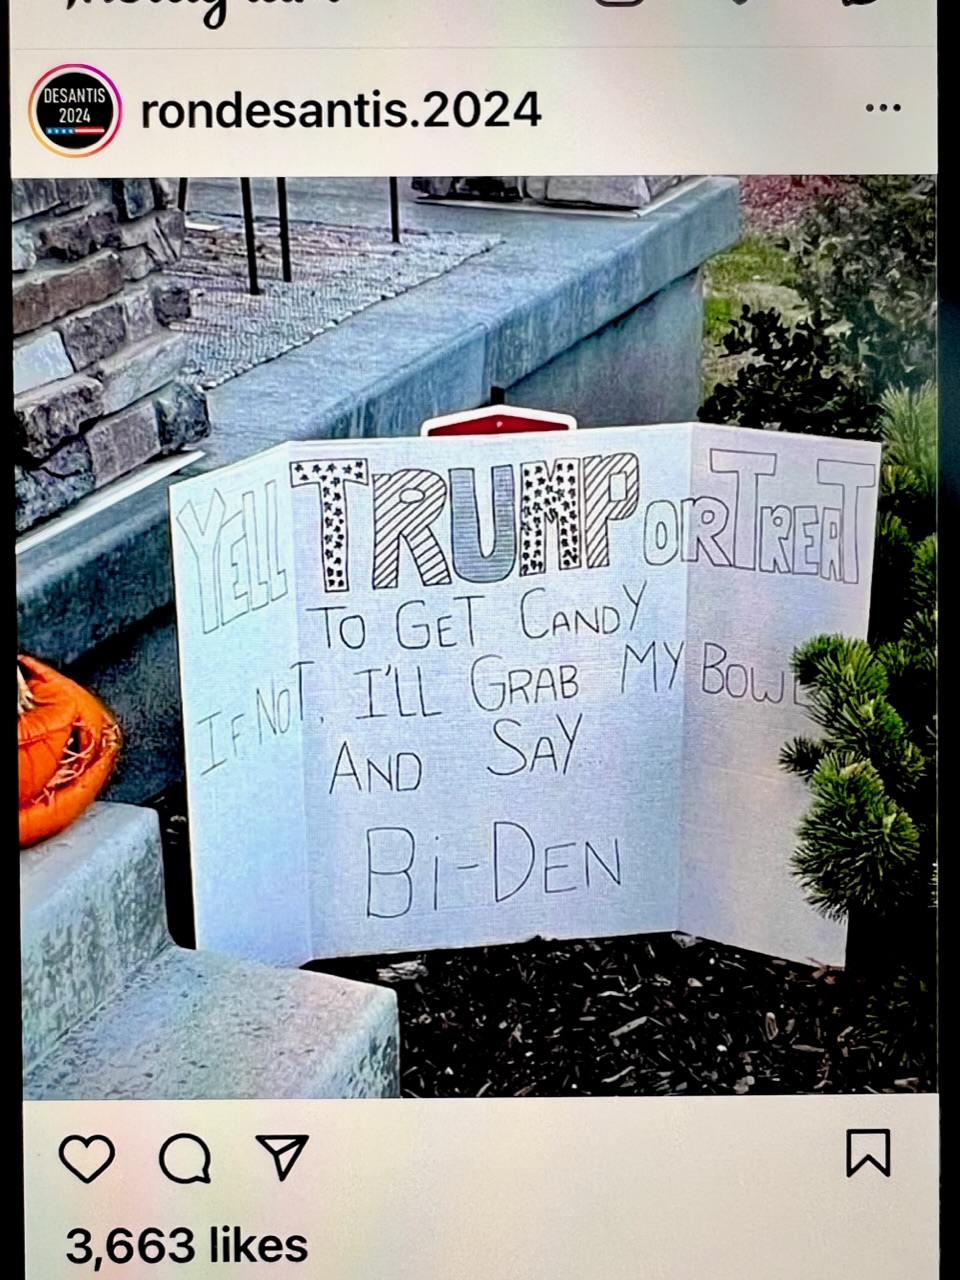 Instagram
DESANTIS
2024
rondesantis.2024
YELL TRUMP OR TREAT
TO GET CANDY
IF NOT, I'LL GRAB MY BOWL
AND SAY
Bi-DEN
3,663 likes